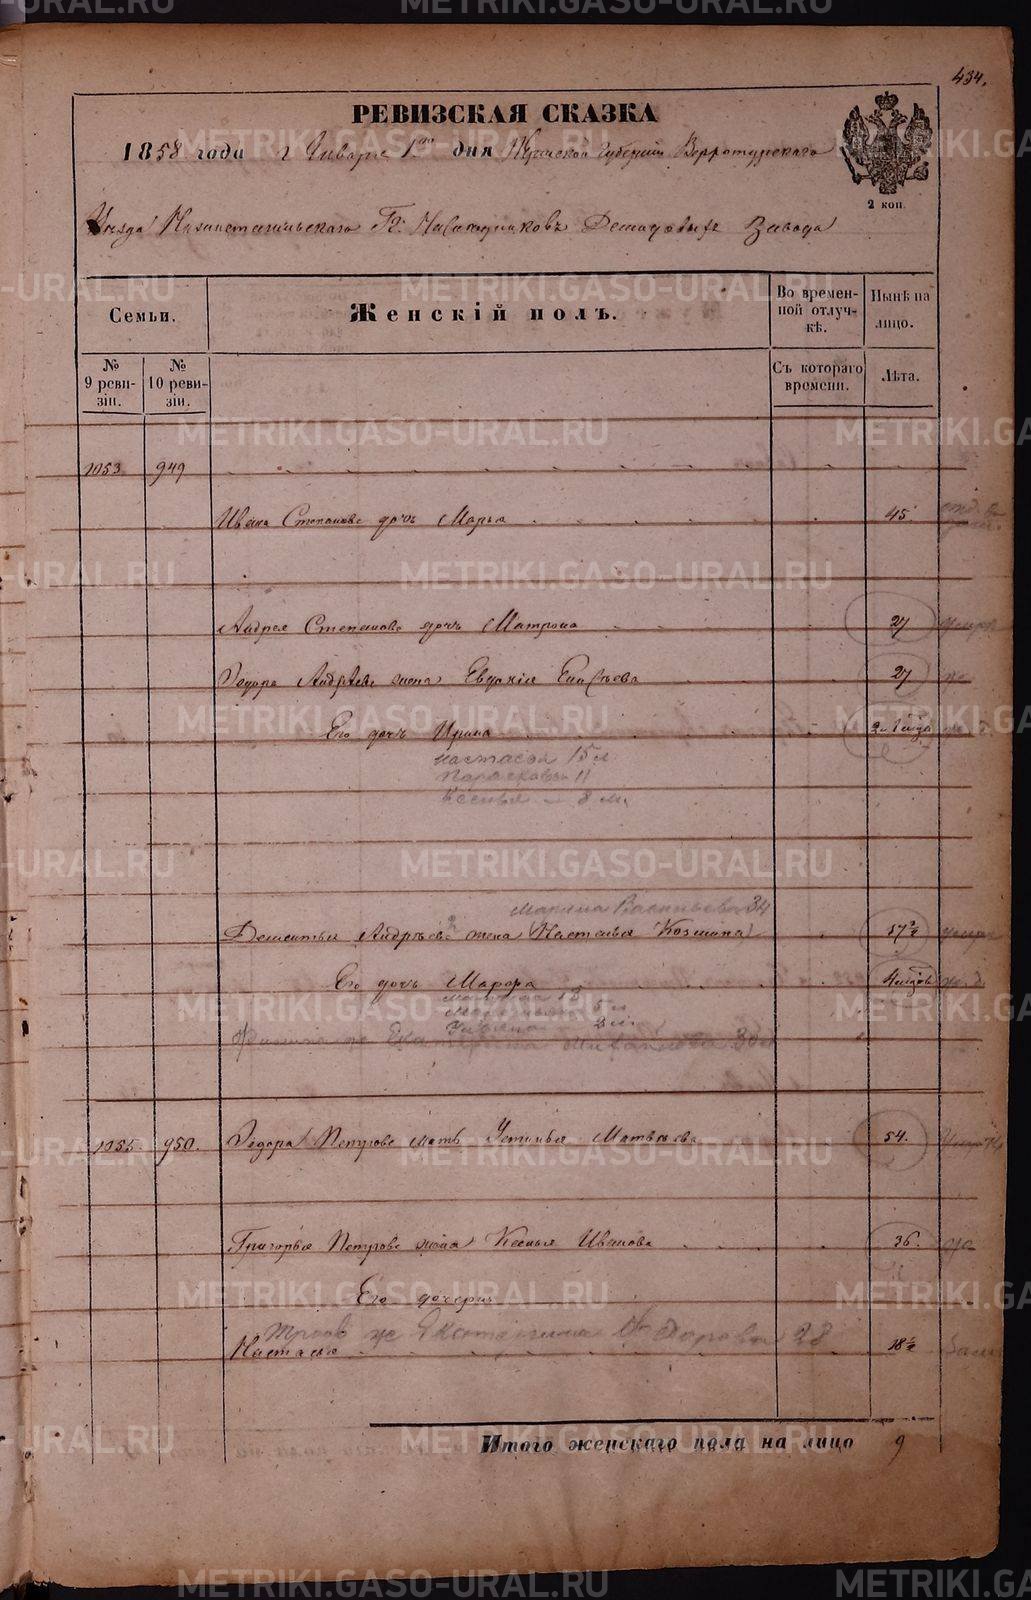 434.
РЕВИЗСКАЯ СКАЗКА
1858 года Января 1го дня Пермской Губернии Верхотурскаго
2 коп.
Уѣзда Нижнетагильскаго Гг. Наслѣдниковъ Демидовыхъ Завода
Семьи. Женскій полъ. Во времен-ной отлуч-кѣ. Нынѣ на лицо.
№ 9 реви-зіи. № 10 реви-зіи. Съ котораго времени. Лѣта.
1053 949
Ивана Степанова дочь Марья 45
Андрея Степанова дочь Матрона 27
Федора Андреева жена Евдокія 27
Его дочь Ирина
Настасья 15 л.
Парасковья 11
Ксенья - 8 м.
Марина Васильева 34
Дементья Андреева 2 жена Настасья Козмина 37½
Его дочь
Екатерина Михайлова 30
1055 950. Федора Петрова мать Устинья Матвѣева 54.
Григорья Петрова жена Ксенья Иванова 36.
Его дочери
Екатерина Федорова 28
Настасья 18½
Итого женскаго пола на лицо 9
METRIKI.GASO-URAL.RU